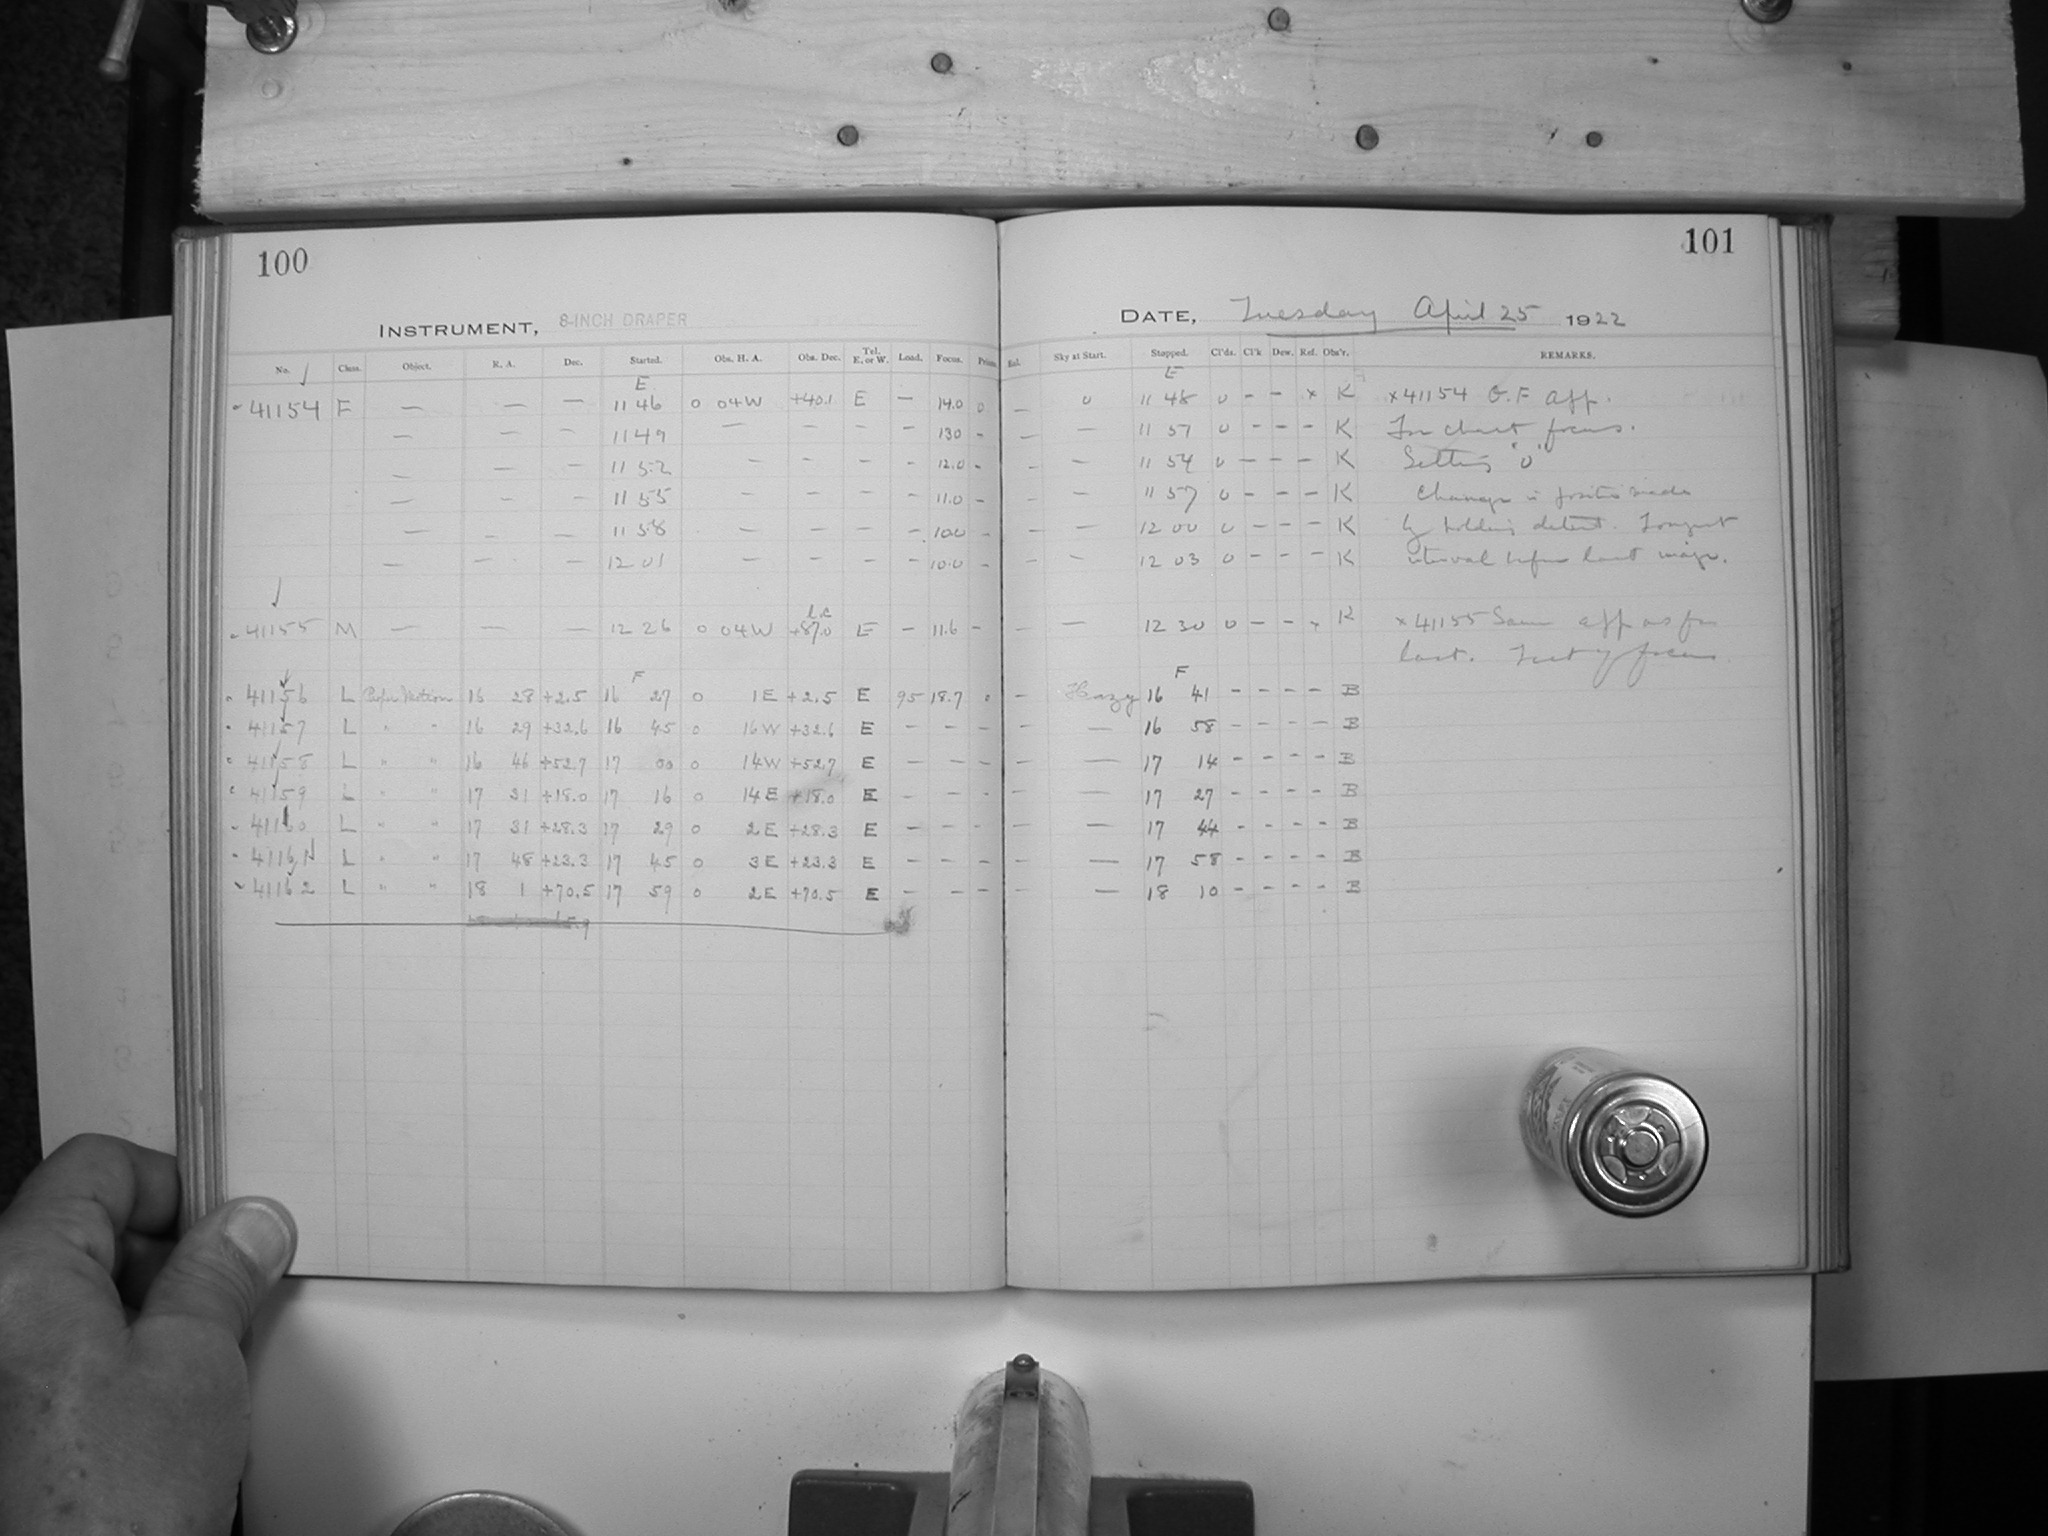 100
101
INSTRUMENT, 8-INCH DRAPER
DATE, Tuesday April 25 1922
No. Class. Object. R. A. Dec. Started. Obs. H. A. Obs. Dec. Tel. E. or W. Load. Focus. Prism. Sky at Start. Stopped. Cl'ds. Cl'k Dew. Ref. Obs'r. REMARKS.
E E
41154 F — — — 11 46 0 04W +40.1 E — 14.0 0 — 0 11 48 0 - - x K x41154 O.F app.
— — — 11 49 — — — — 13.0 - — — 11 51 0 - - - K For chart focus.
— — — 11 52 — — — — 12.0 - — — 11 54 0 - - - K Setting "0"
— — — 11 55 — — — — 11.0 - — — 11 57 0 - - - K Change in position made
— — — 11 58 — — — — 10.0 - — — 12 00 0 - - - K by holding detent. Longest
— — — 12 01 — — — — 10.0 - — — 12 03 0 - - - K interval before last image.
l.c
41155 M — — — 12 26 0 04W +87.0 E — 11.6 - — — 12 30 0 - - x K x41155 Same app as for
last. Test of focus
F F
41156 L Proper Motion 16 28 +2.5 16 27 0 1E +2.5 E 95 18.7 - — Hazy 16 41 - - - - B
41157 L " " 16 29 +32.6 16 45 0 16W +32.6 E — — - — — 16 58 - - - - B
41158 L " " 16 46 +52.7 17 00 0 14W +52.7 E — — - — — 17 14 - - - - B
41159 L " " 17 31 +18.0 17 16 0 14E +18.0 E — — - — — 17 27 - - - - B
41160 L " " 17 31 +28.3 17 29 0 2E +28.3 E — — - — — 17 44 - - - - B
41161 L " " 17 48 +23.3 17 45 0 3E +23.3 E — — - — — 17 58 - - - - B
41162 L " " 18 1 +70.5 17 59 0 2E +70.5 E — — - — — 18 10 - - - - B